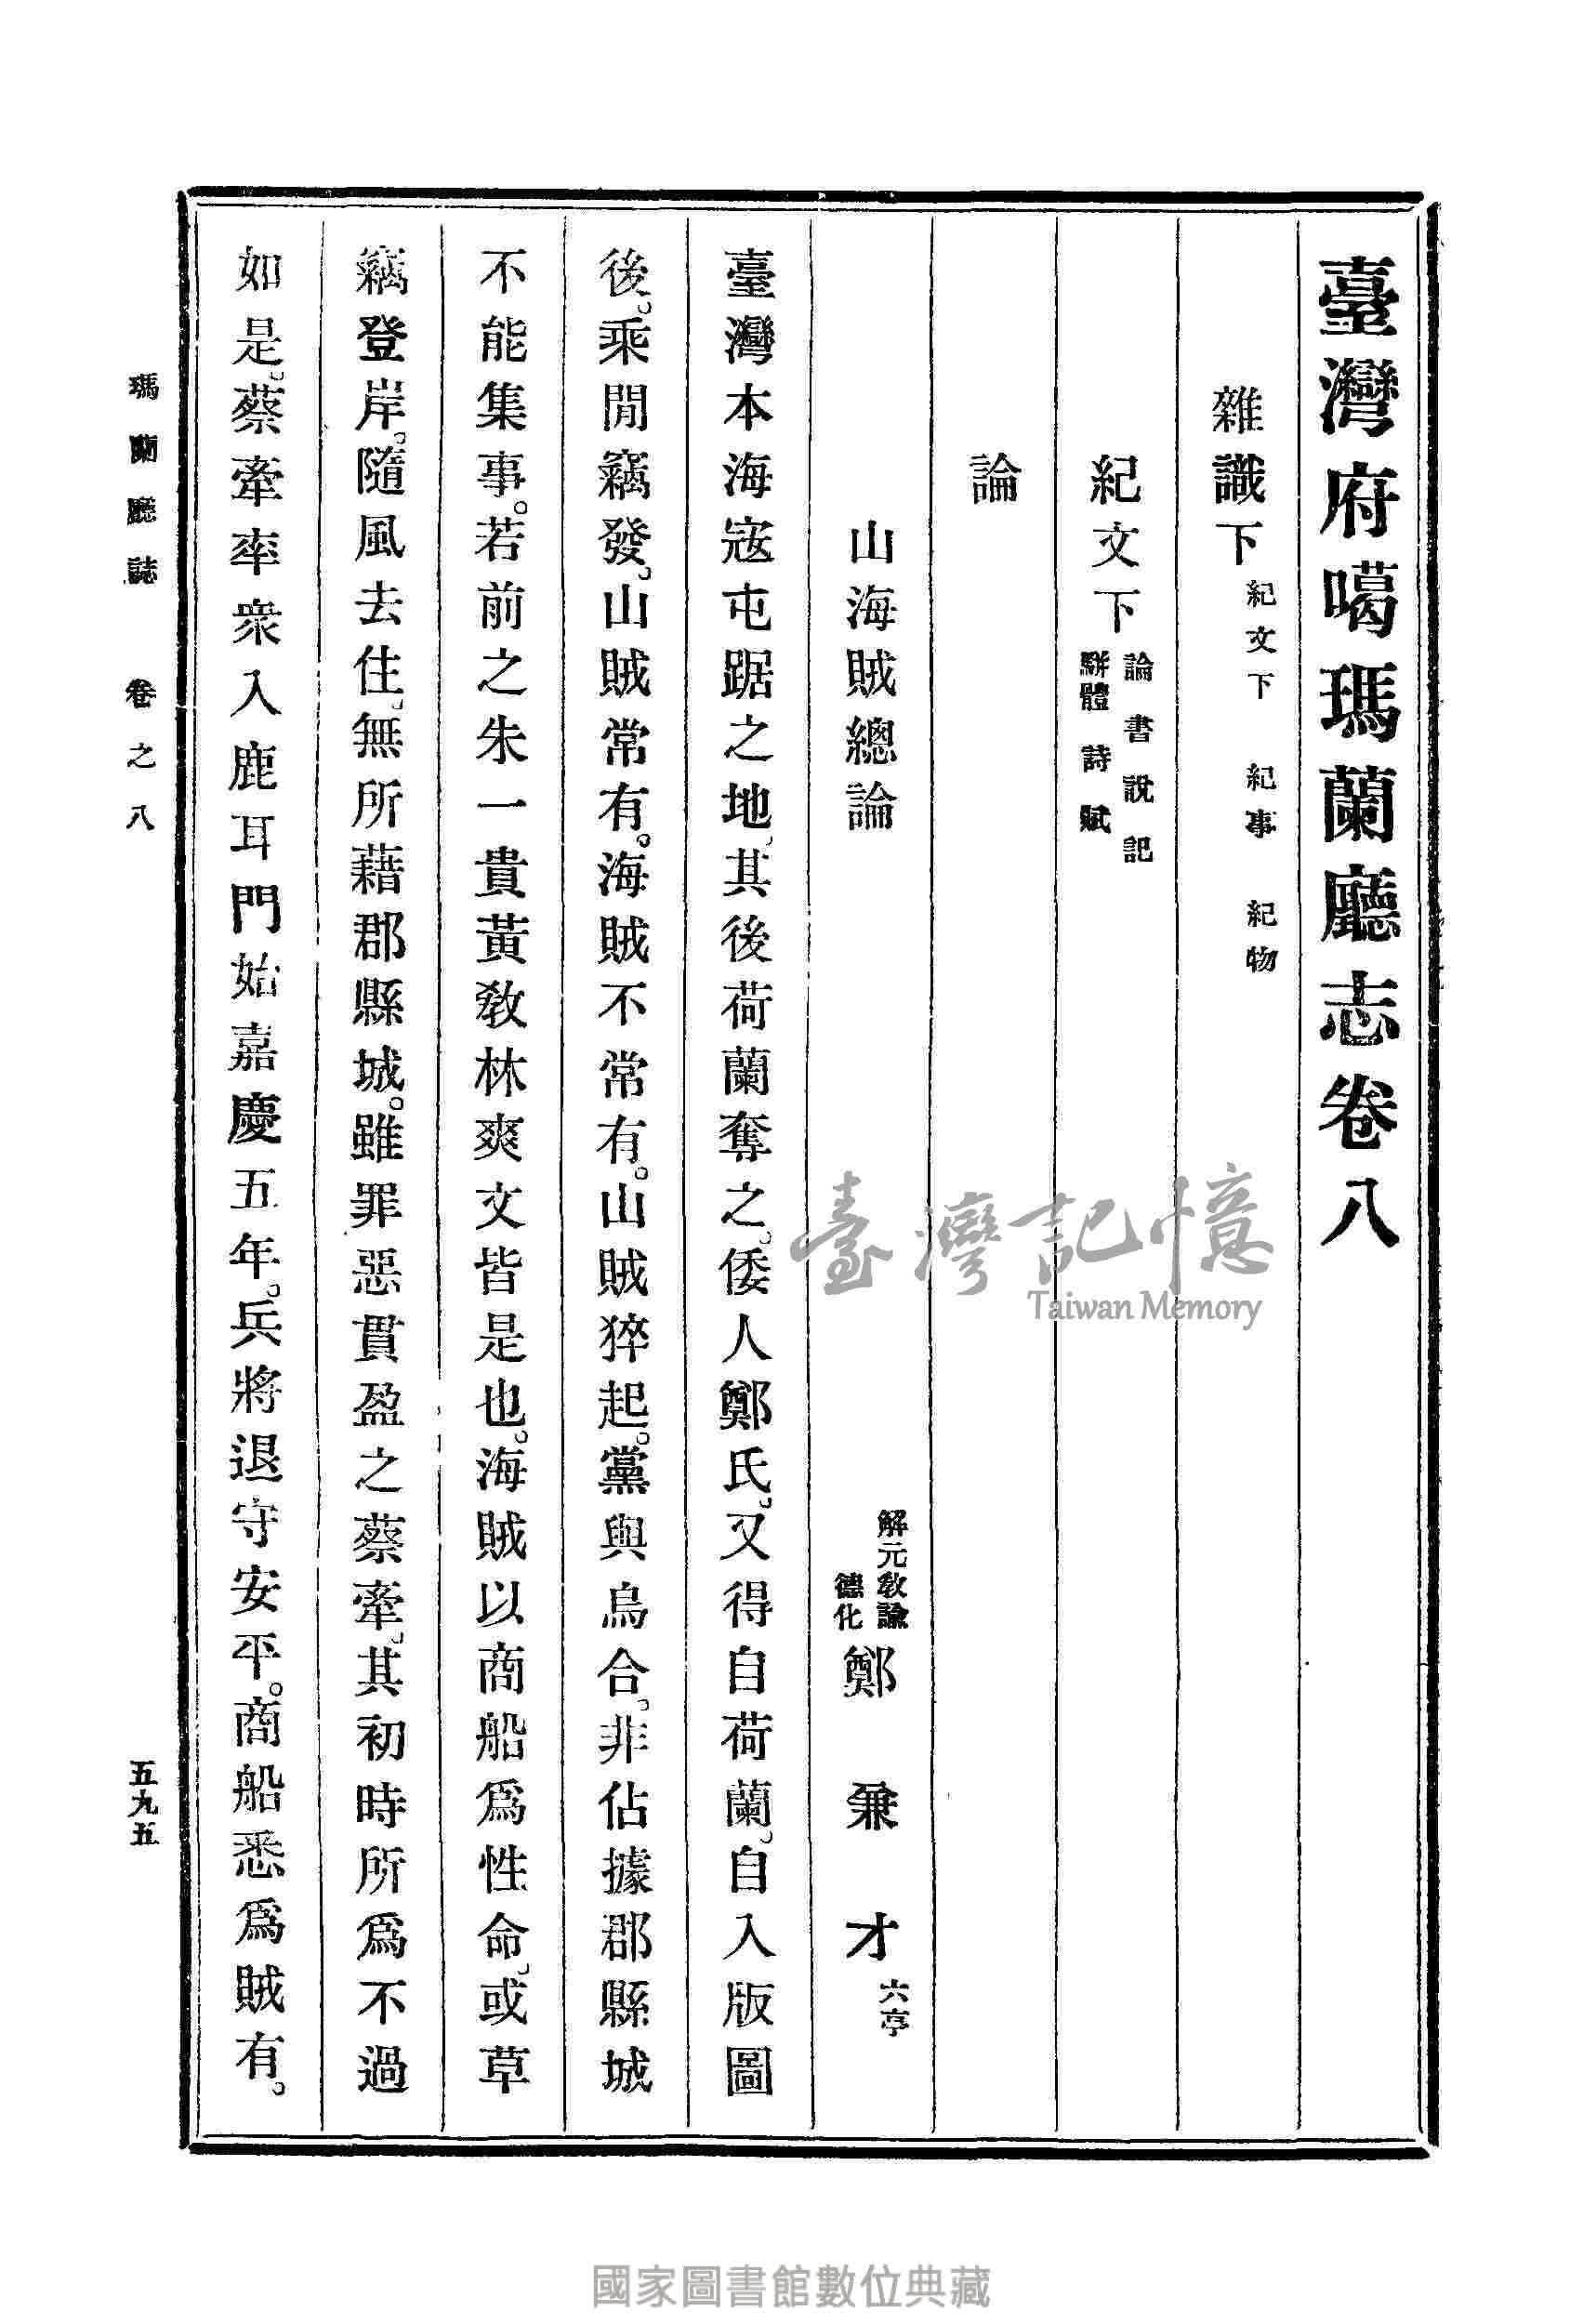 臺灣府噶瑪蘭廳志卷八
雜識下 紀文下 紀事 紀物
紀文下 論書說記 駢體詩賦
論
山海賊總論 解元教諭 德化 鄭兼才 六亭
臺灣本海寇屯踞之地、其後荷蘭奪之。倭人鄭氏、又得自荷蘭、自入版圖
後。乘閒竊發。山賊常有。海賊不常有。山賊猝起。黨與烏合。非佔據郡縣城
不能集事。若前之朱一貴黃教林爽文皆是也。海賊以商船爲性命。或草
竊登岸。隨風去住。無所藉郡縣城。雖罪惡貫盈之蔡牽。其初時所爲不過
如是。蔡牽率衆入鹿耳門始嘉慶五年。兵將退守安平。商船悉爲賊有。
瑪蘭廳誌 卷之八 五九五
臺灣記憶
Taiwan Memory
國家圖書館數位典藏